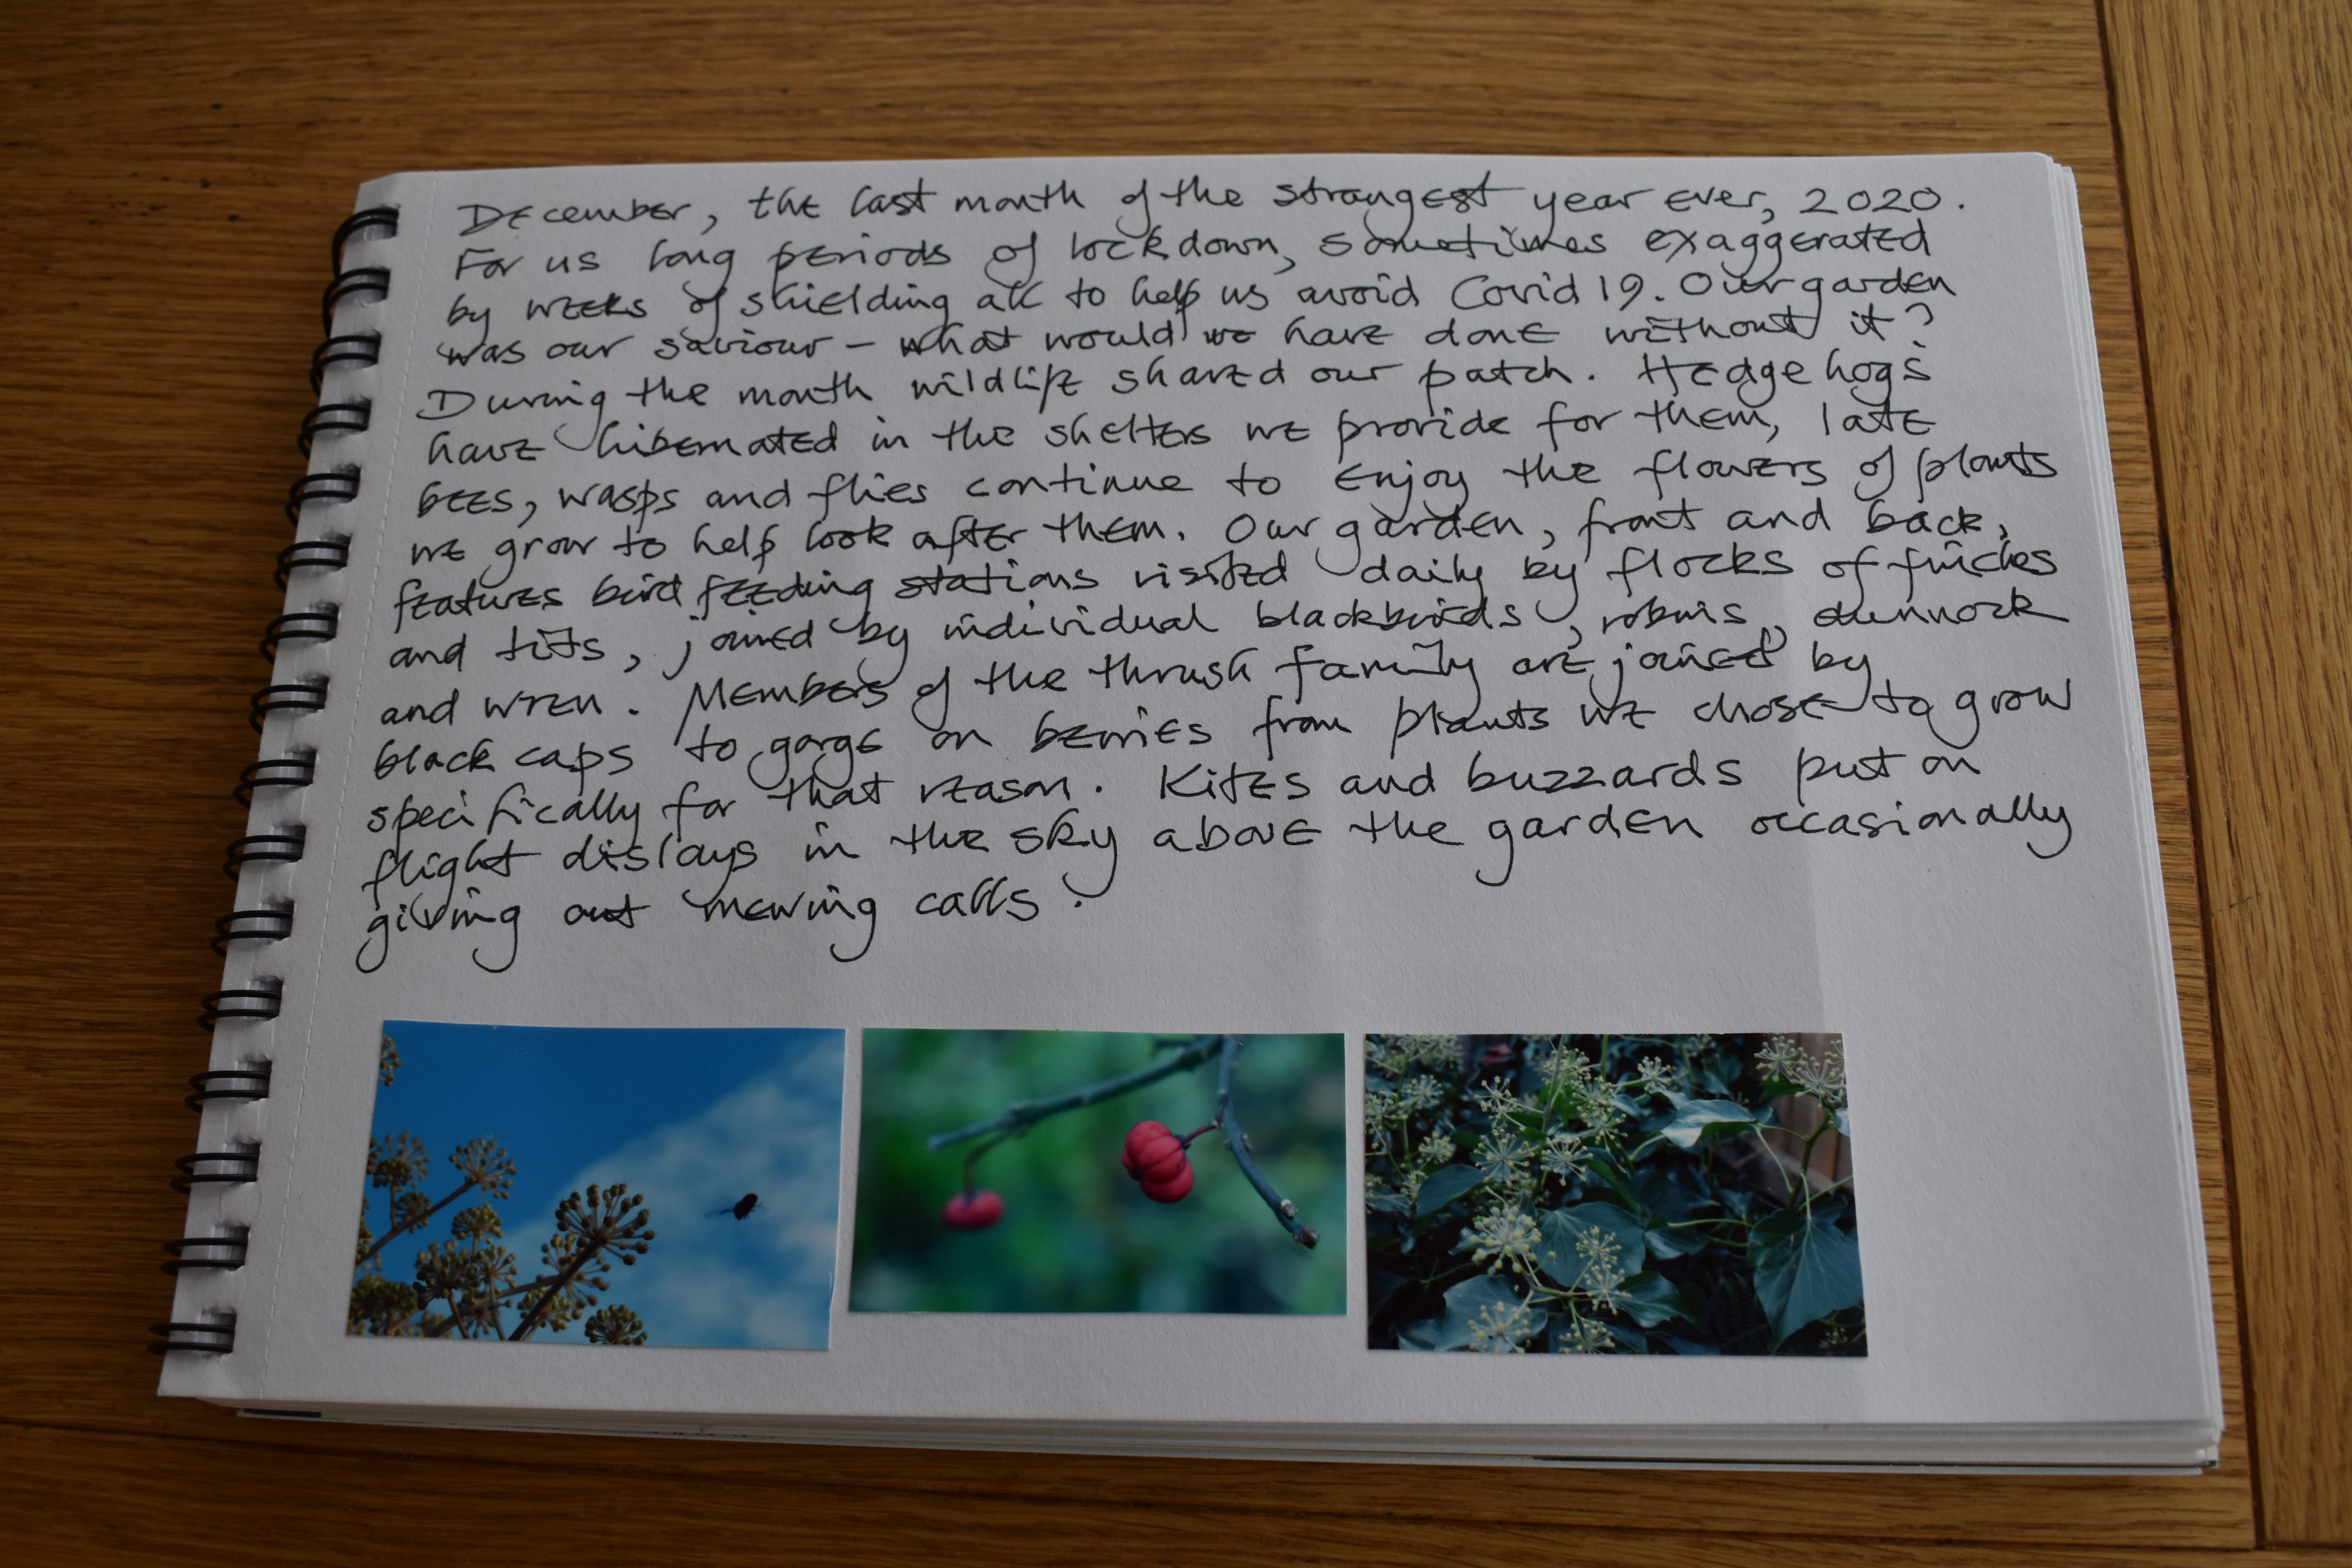 December, the last month of the strangest year ever, 2020.
For us long periods of lockdown, sometimes exaggerated
by weeks of shielding all to help us avoid Covid 19. Our garden
was our saviour – what would we have done without it?
During the month wildlife shared our patch. Hedgehogs
have hibernated in the shelters we provide for them, late
bees, wasps and flies continue to enjoy the flowers of plants
we grow to help look after them. Our garden, front and back,
features bird feeding stations visited daily by flocks of finches
and tits, joined by individual blackbirds, robins, dunnock
and wren. Members of the thrush family are joined by
black caps to gorge on berries from plants we chose to grow
specifically for that reason. Kites and buzzards put on
flight dislays in the sky above the garden occasionally
giving out mewing calls.